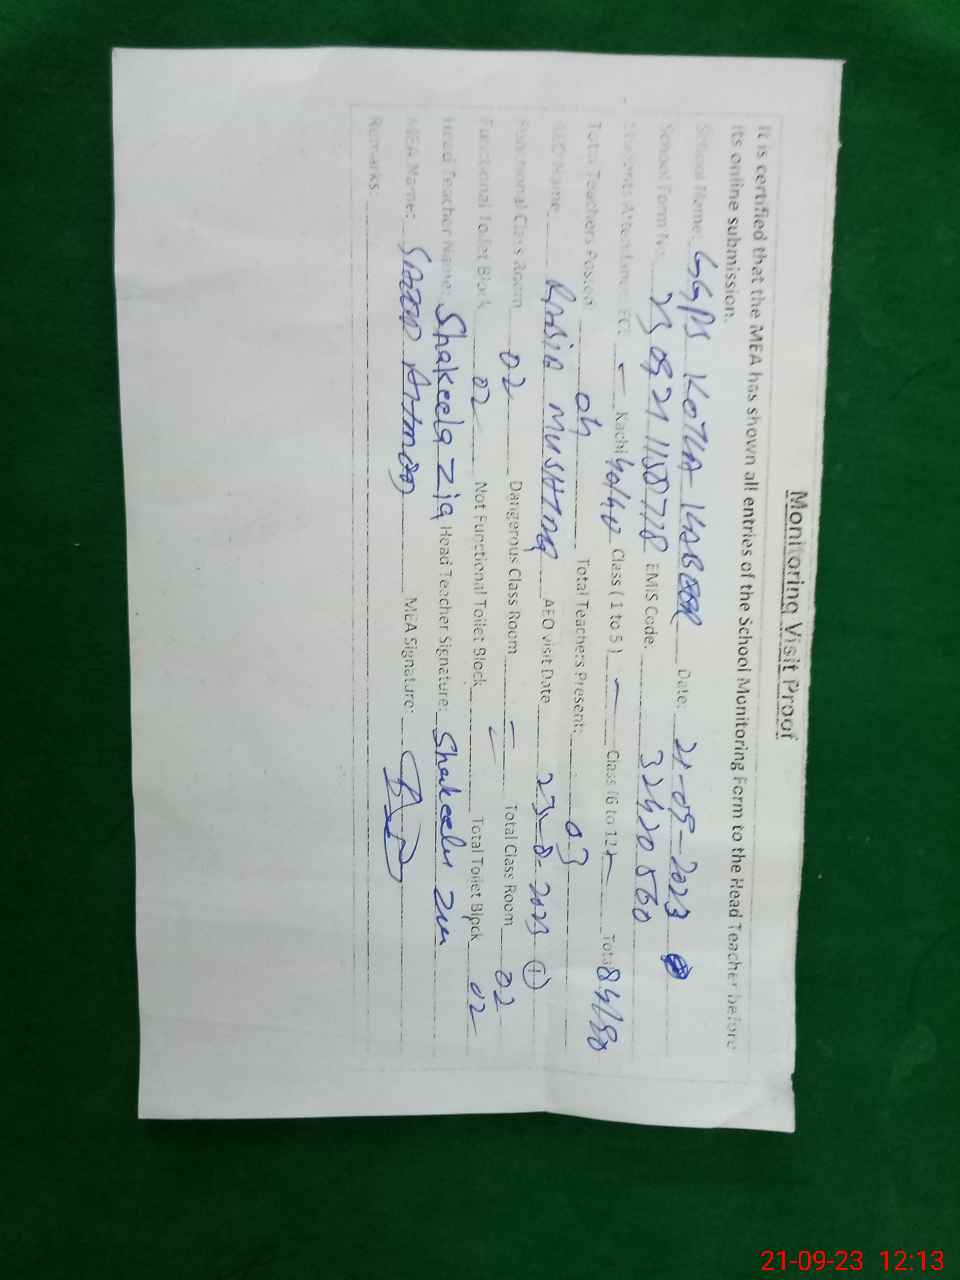 Monitoring Visit Proof
It is certified that the MEA has shown all entries of the School Monitoring Form to the Head Teacher before
its online submission.
School Name: GGPS KOTLA KABEER Date: 21-09-2023
School Form No. 230921118718 EMIS Code. 32420560
Students Attendance ECE — Kachi 40/40 Class (1 to 5) — Class (6 to 12) — Total 84/80
Total Teachers Posted: 04 Total Teachers Present: 03
AEO Name RABIA MUSHTAQ AEO visit Date 23-8-2023 (1)
Functional Class Room 02 Dangerous Class Room — Total Class Room 02
Functional Toilet Block 02 Not Functional Toilet Block Total Toilet Block 02
Head Teacher Name: Shakeela Zia Head Teacher Signature: Shakeela Zia
MEA Name: AHMAD MEA Signature:
Remarks:
21-09-23 12:13